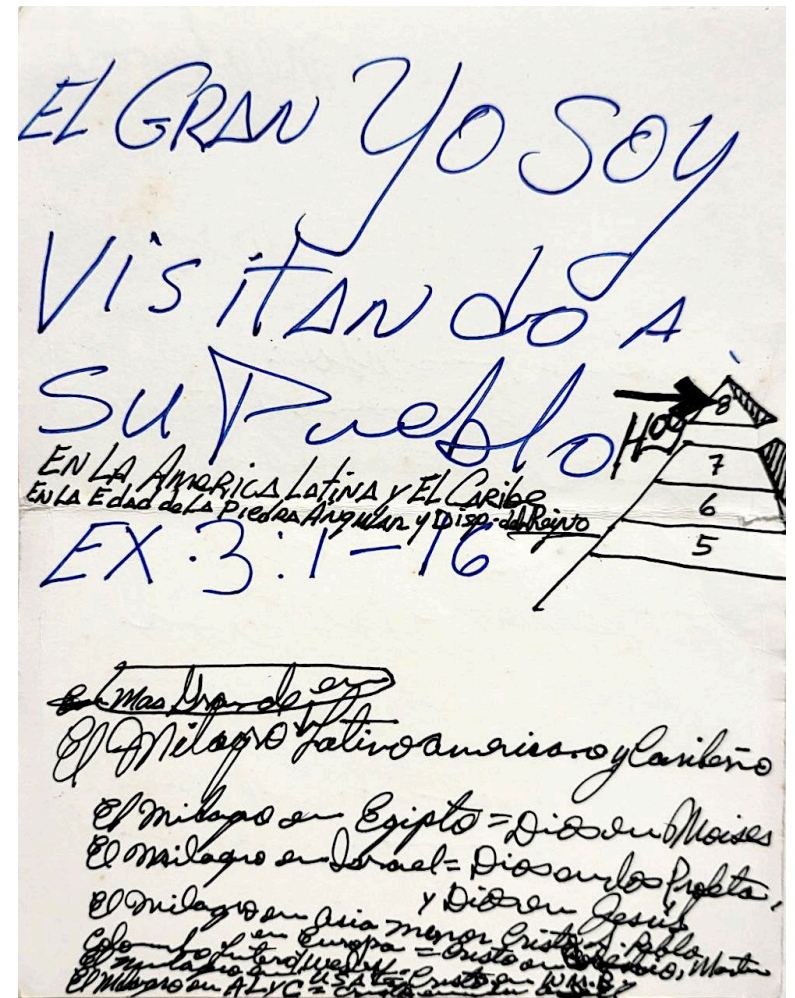 EL GRAN YO SOY
VISITANDO A
SU Pueblo
EN LA America Latina y EL Caribe
EN LA Edad de LA Piedra Angular y Disp. del Reino
EX. 3:1-16
Hoy
8
7
6
5
mas Grande en
El Milagro Latinoamericano y Caribeño
El milagro en Egipto = Dios en Moises
El milagro en Israel = Dios en los Profetas,
y Dios en Jesús
El milagro en Asia menor Cristo S. Pablo
en Europa = Cristo en
Colombo, Lutero, Wesley, Martin
El milagro en USA = Cristo en W.M.B.
El Milagro en ALyC = Cristo en